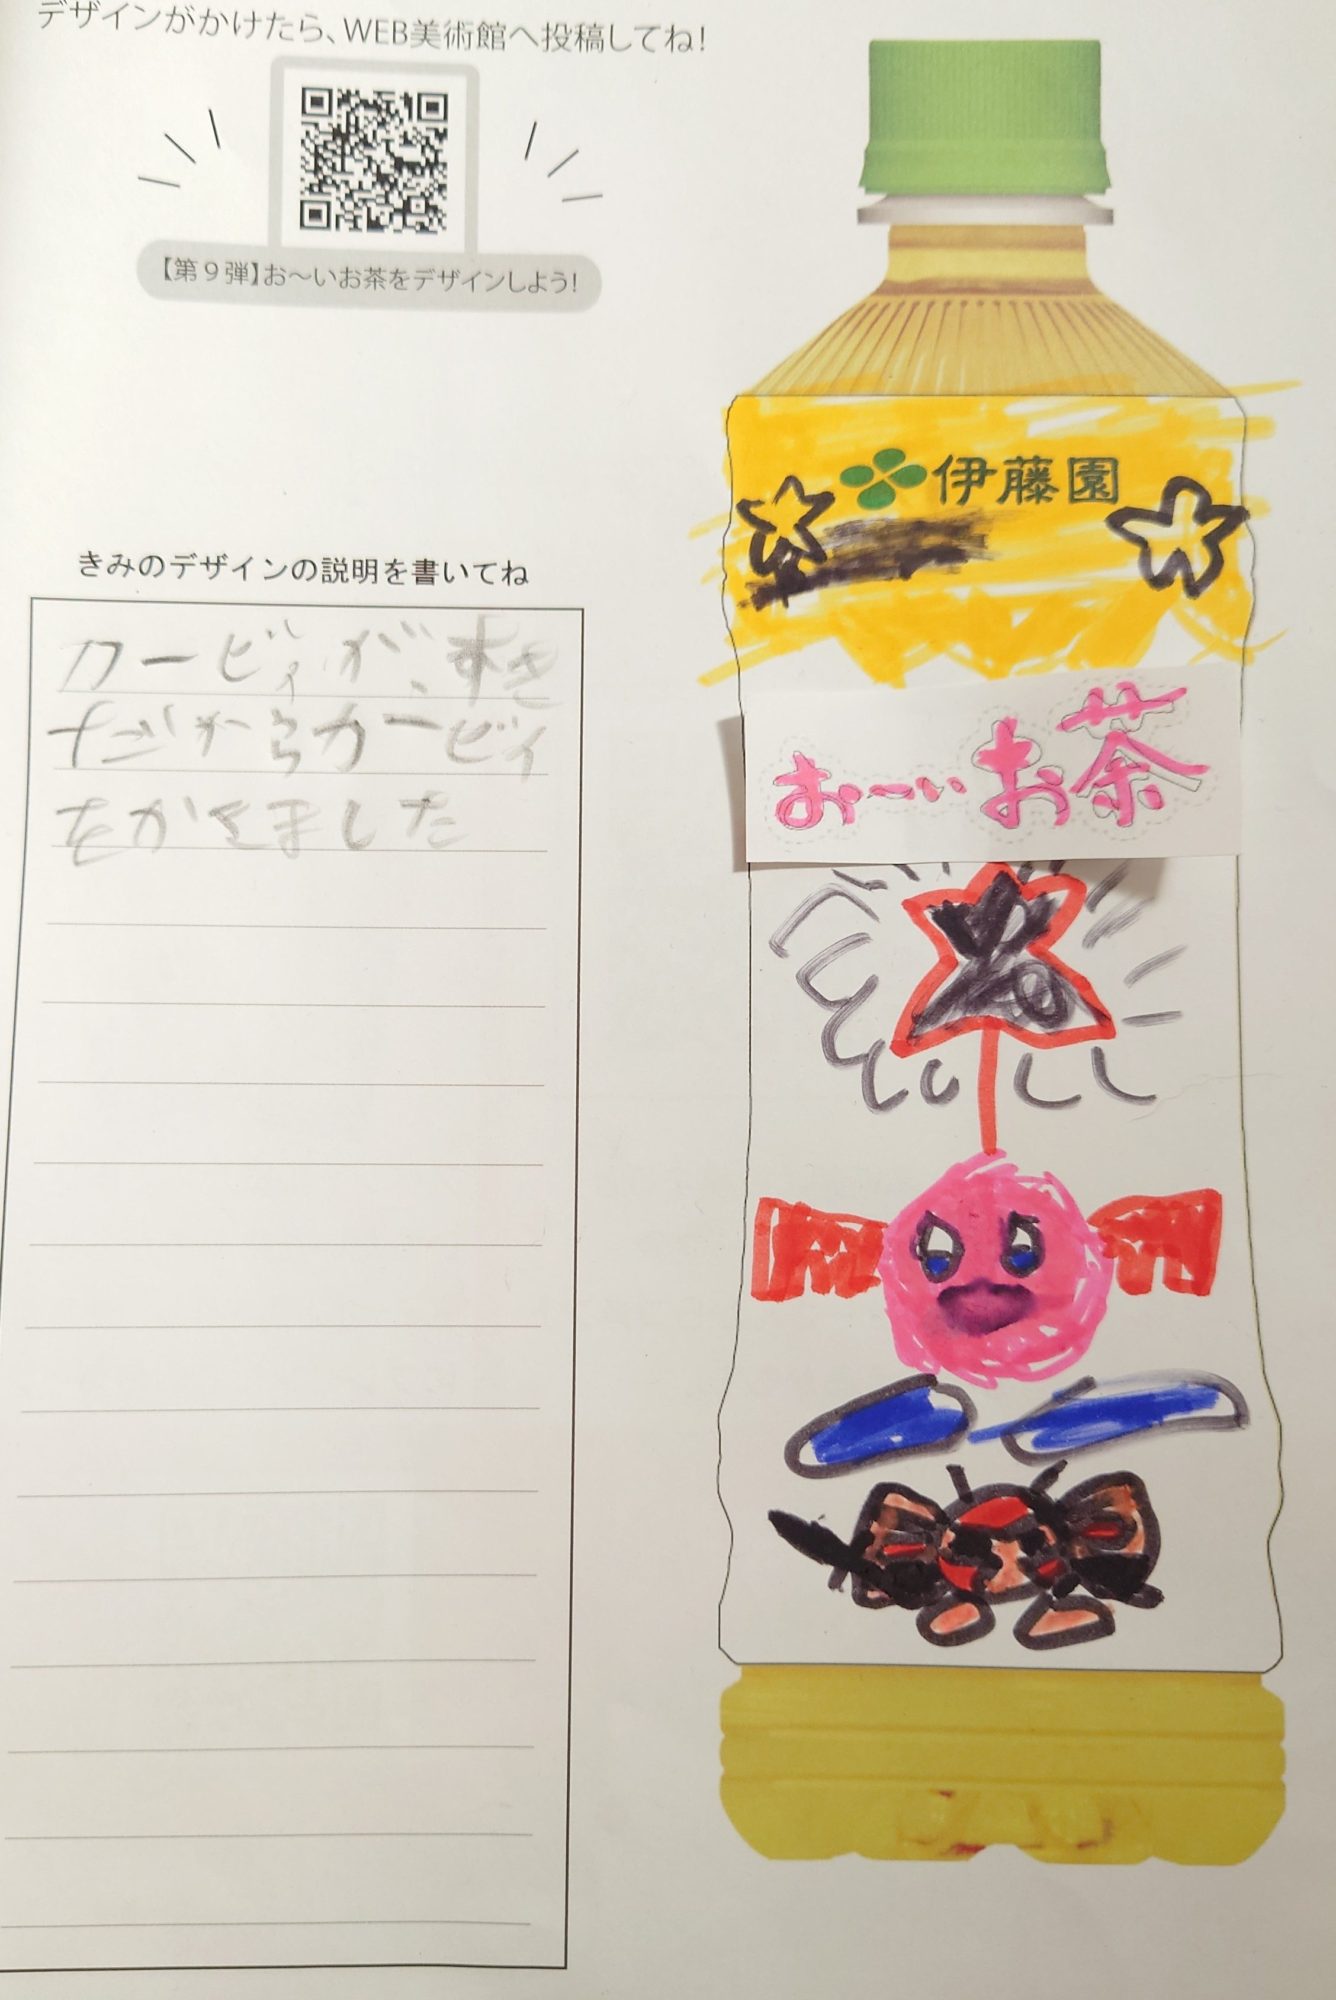 デザインがかけたら、WEB美術館へ投稿してね!
【第9弾】お~いお茶をデザインしよう!
きみのデザインの説明を書いてね
カービィが、すき
だからカービィ
をかきました
伊藤園
お~いお茶